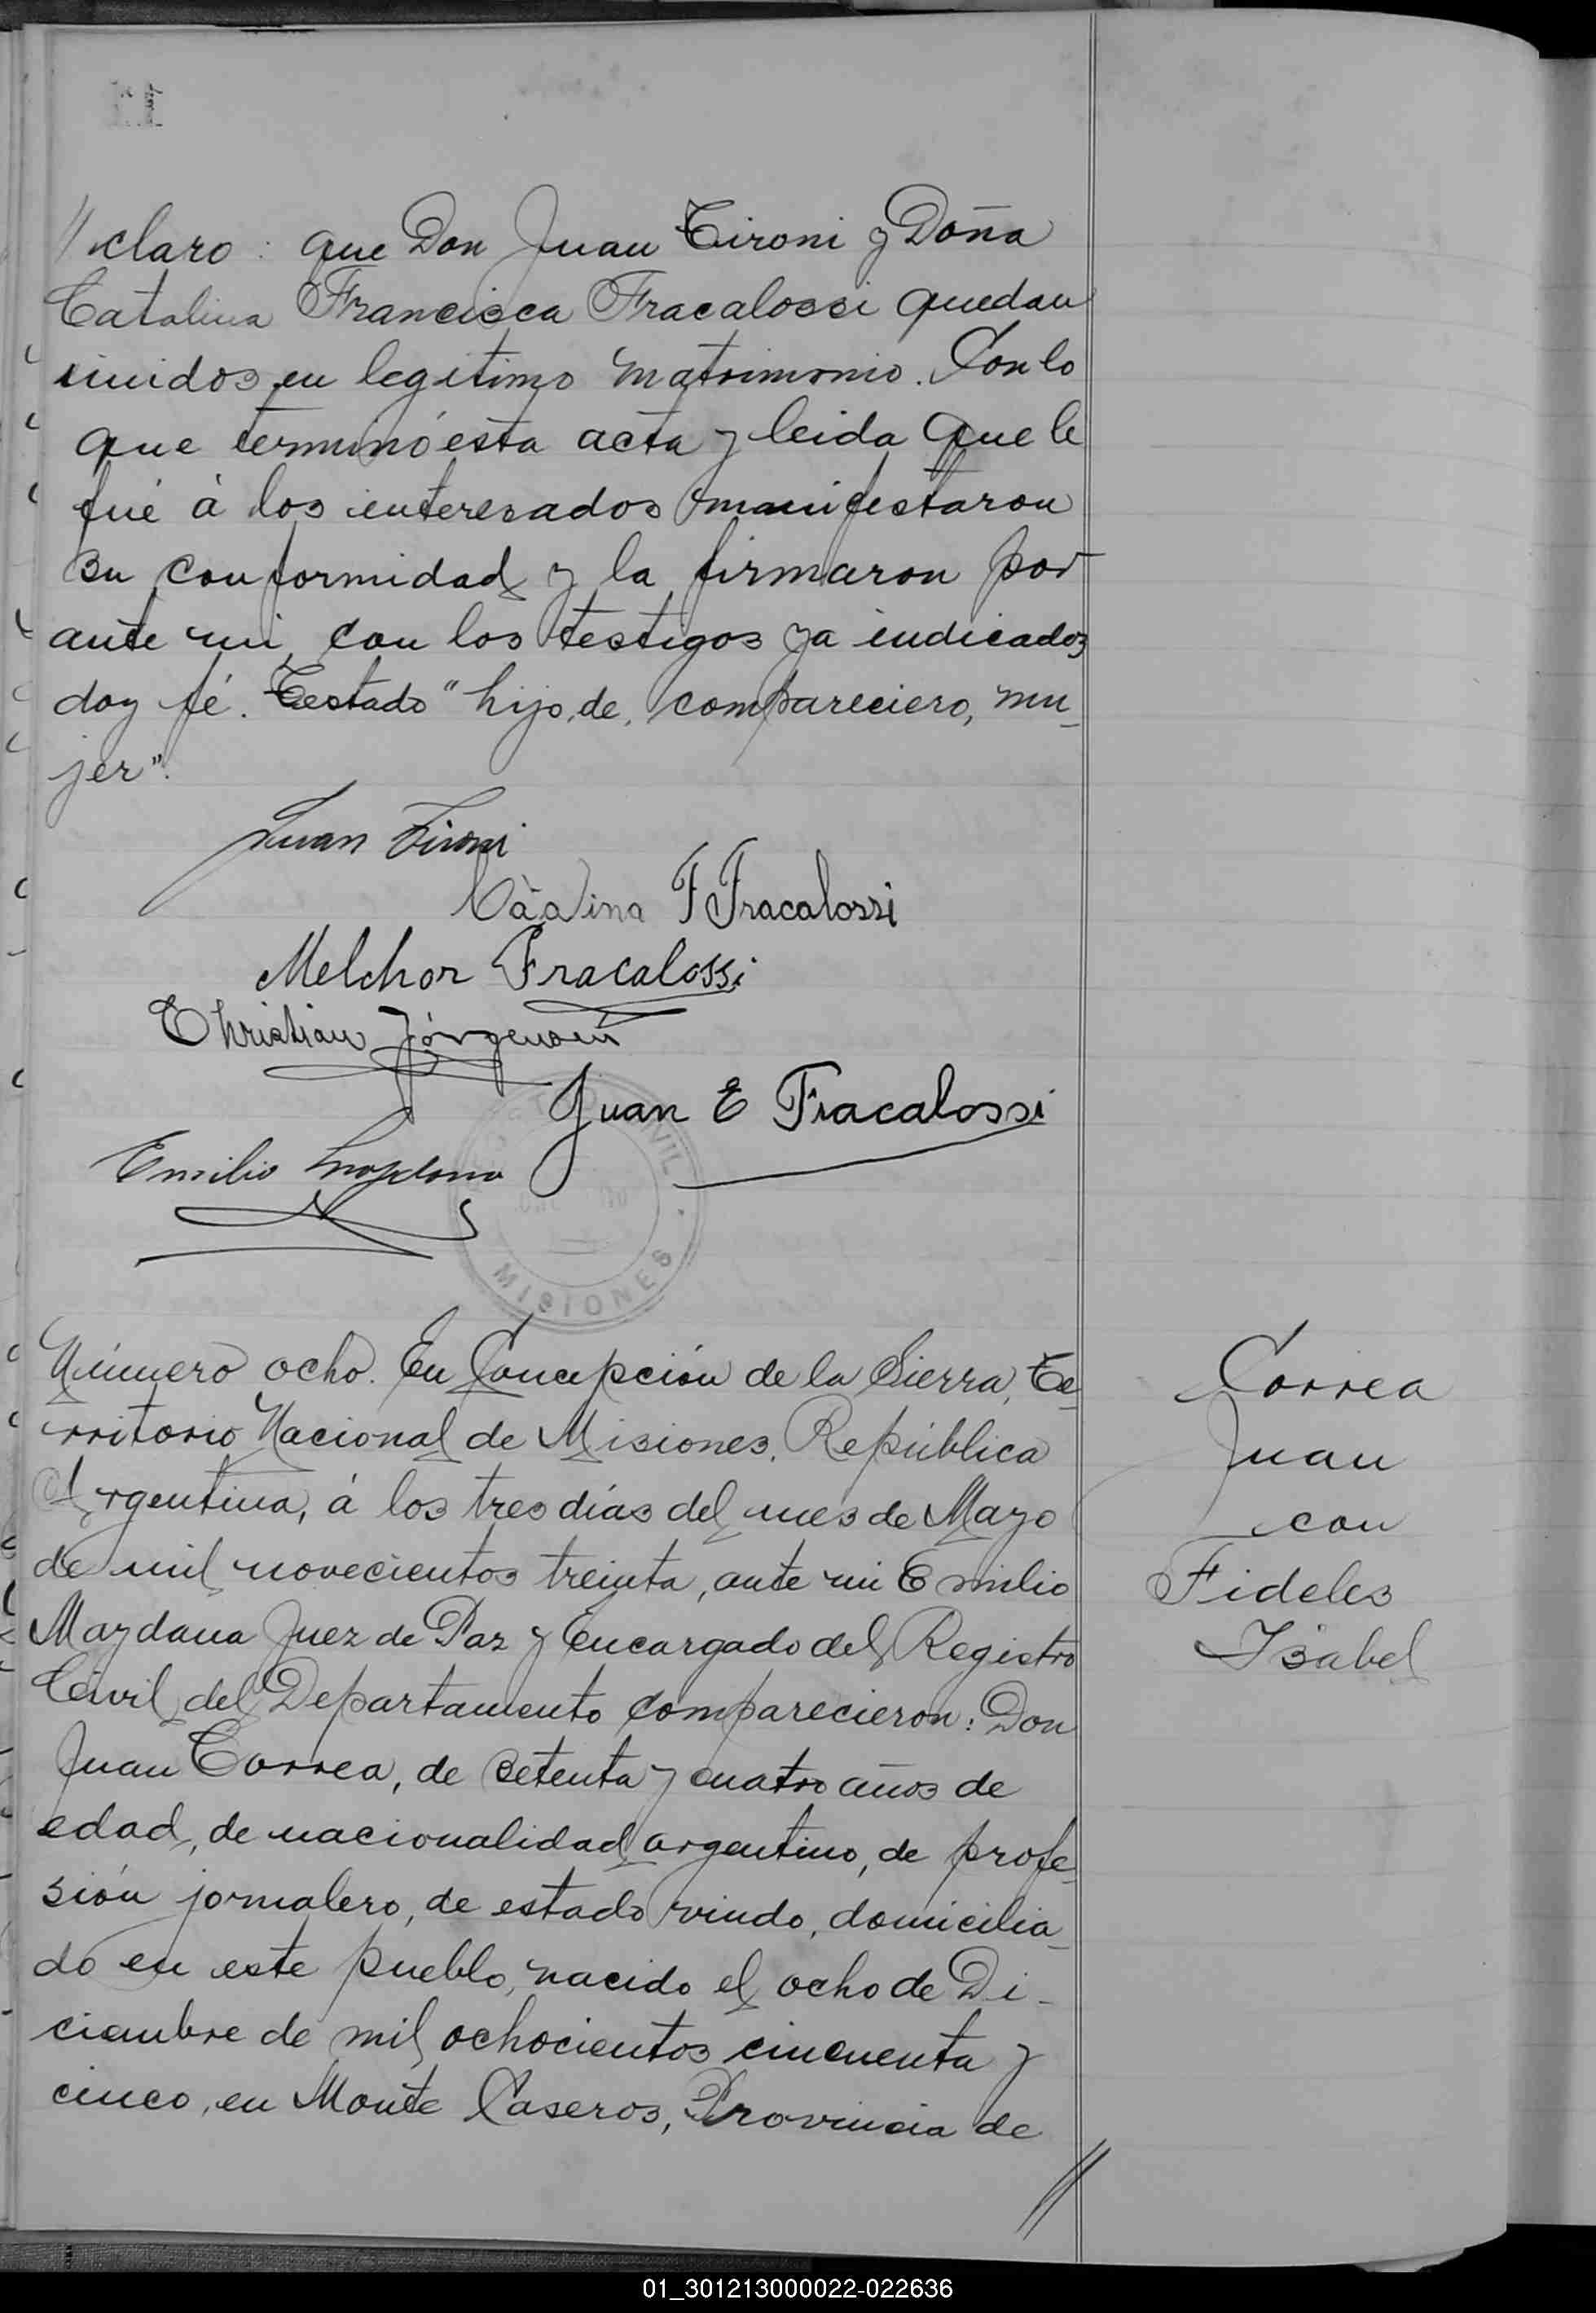 // claro: que Don Juan Tironi y Doña
Catalina Francisca Fracalossi quedan
unidos en legítimo matrimonio. Con lo
que terminó esta acta y leida que le
fué á los interesados manifestaron
su conformidad y la firmaron por
ante mi, con los testigos ya indicados
doy fé. Testado "hijo, de, compareciero, mu-
jer".
Juan Tironi
Catalina F Fracalossi
Melchor Fracalossi
Christian
Juan E Fracalossi
Emilio
CIVIL
MISIONES
Número ocho. En Concepción de la Sierra, Te-
rritorio Nacional de Misiones, República
Argentina, á los tres días del mes de Mayo
de mil novecientos treinta, ante mi Emilio
Maydana Juez de Paz y encargado del Registro
Civil del Departamento, comparecieron: Don
Juan Correa, de setenta y cuatro años de
edad, de nacionalidad argentino, de profe-
sión jornalero, de estado viudo, domicilia-
do en este pueblo, nacido el ocho de Di-
ciembre de mil ochocientos cincuenta y
cinco, en Monte Caseros, Provincia de
//
Correa
Juan
con
Fideles
Isabel
01_301213000022-022636